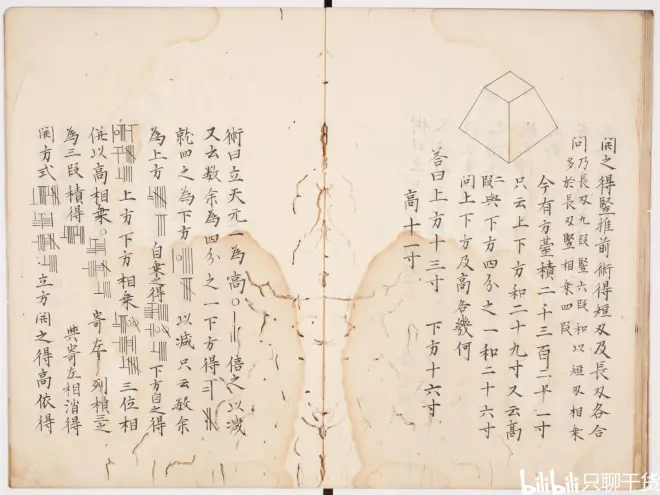 開之得竪推前術得短刄及長刄各合
問乃長刄九段竪六段和以短刄相乗
多於長刄竪相乗四段
今有方臺積二千三百二十一寸
只云上下方和二十九寸又云高
二段與下方四分之一和二十六寸
問上下方及高各幾何
答曰上方十三寸 下方十六寸
高十一寸
術曰立天元一為高 倍之以減
又云数余為四分之一下方得
就四之為下方 以減只云数余
為上方 自乗之得 下方自之得
上方下方相乗 三位相
併以高相乗 寄左列積三之
為三段積得 與寄左相消得
開方式 立方開之得高依得
bilibili 只聊干货